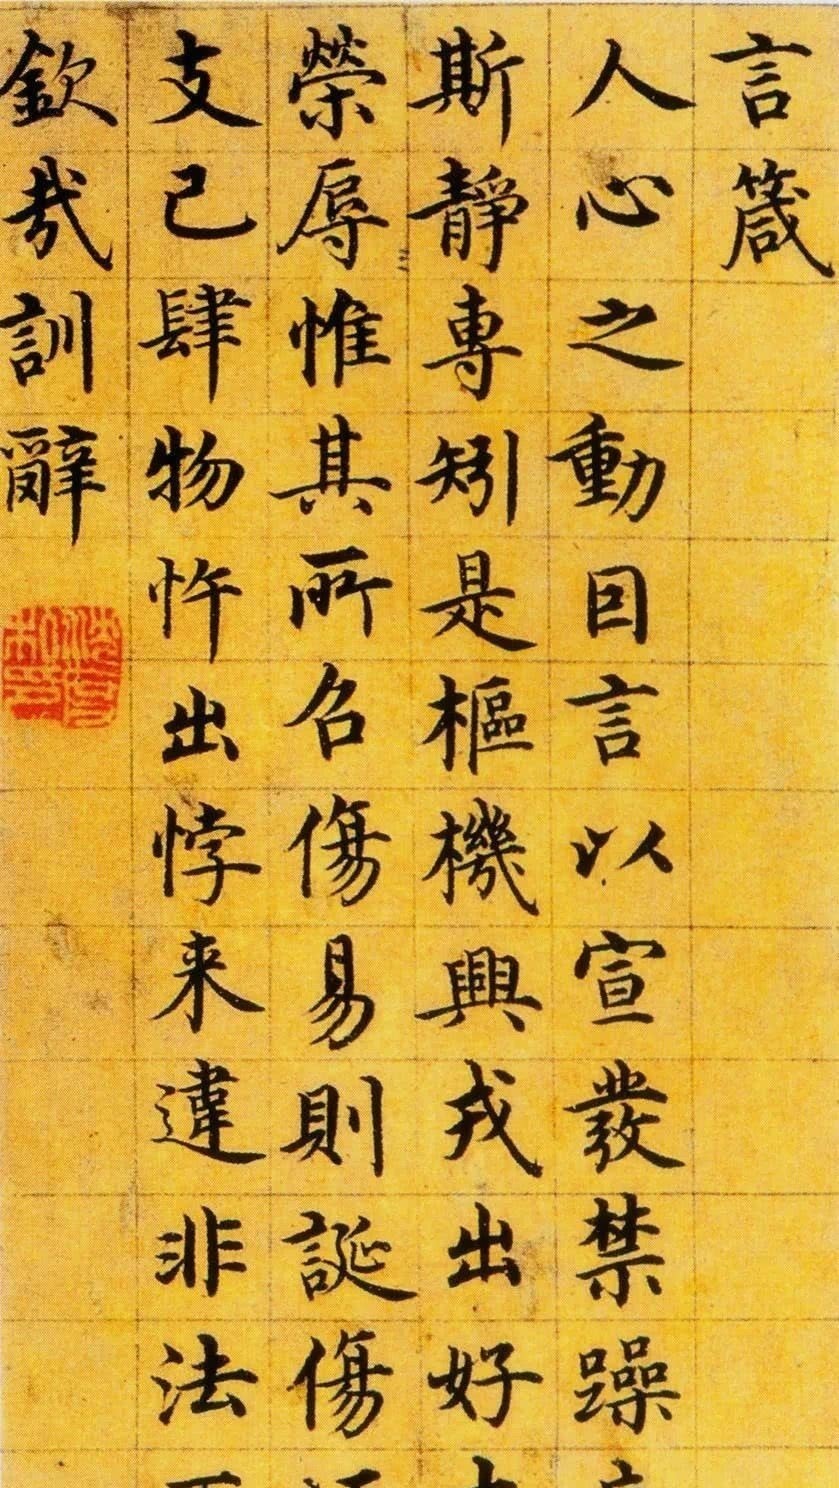 言箴
人心之動因言以宣發禁躁
斯靜專矧是樞機興戎出好
榮辱惟其所召傷易則誕傷
支己肆物忤出悖来違非法
欽哉訓辭